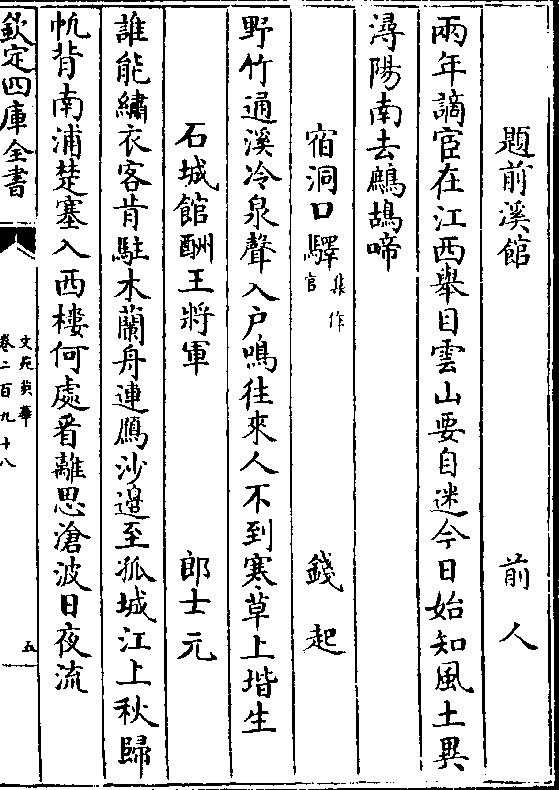 題前溪館　前人
兩年謫宦在江西舉目雲山要自迷今日始知風土異
潯陽南去鷓鴣啼
宿洞口驛集作官　錢起
野竹通溪冷泉聲入戶鳴往來人不到寒草上堦生
石城館酬王將軍　郎士元
誰能繡衣客肯駐木蘭舟連鴈沙邉至孤城江上秋歸
帆背南浦楚塞入西樓何處看離思滄波日夜流
欽定四庫全書
文苑英華
卷二百九十八
五